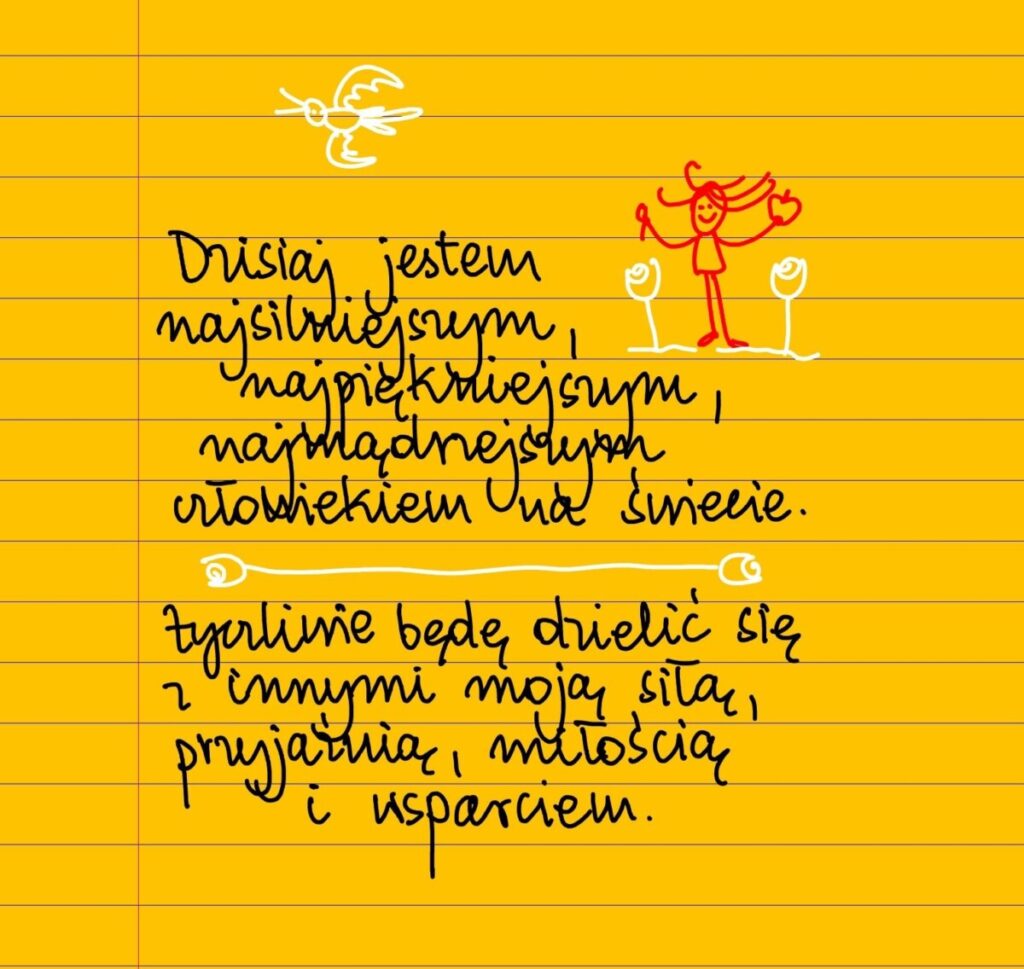 Dzisiaj jestem
najsilniejszym,
najpiękniejszym,
najmądrzejszym
człowiekiem na świecie.
życzliwie będę dzielić się
z innymi moją siłą,
przyjaźnią, miłością
i wsparciem.